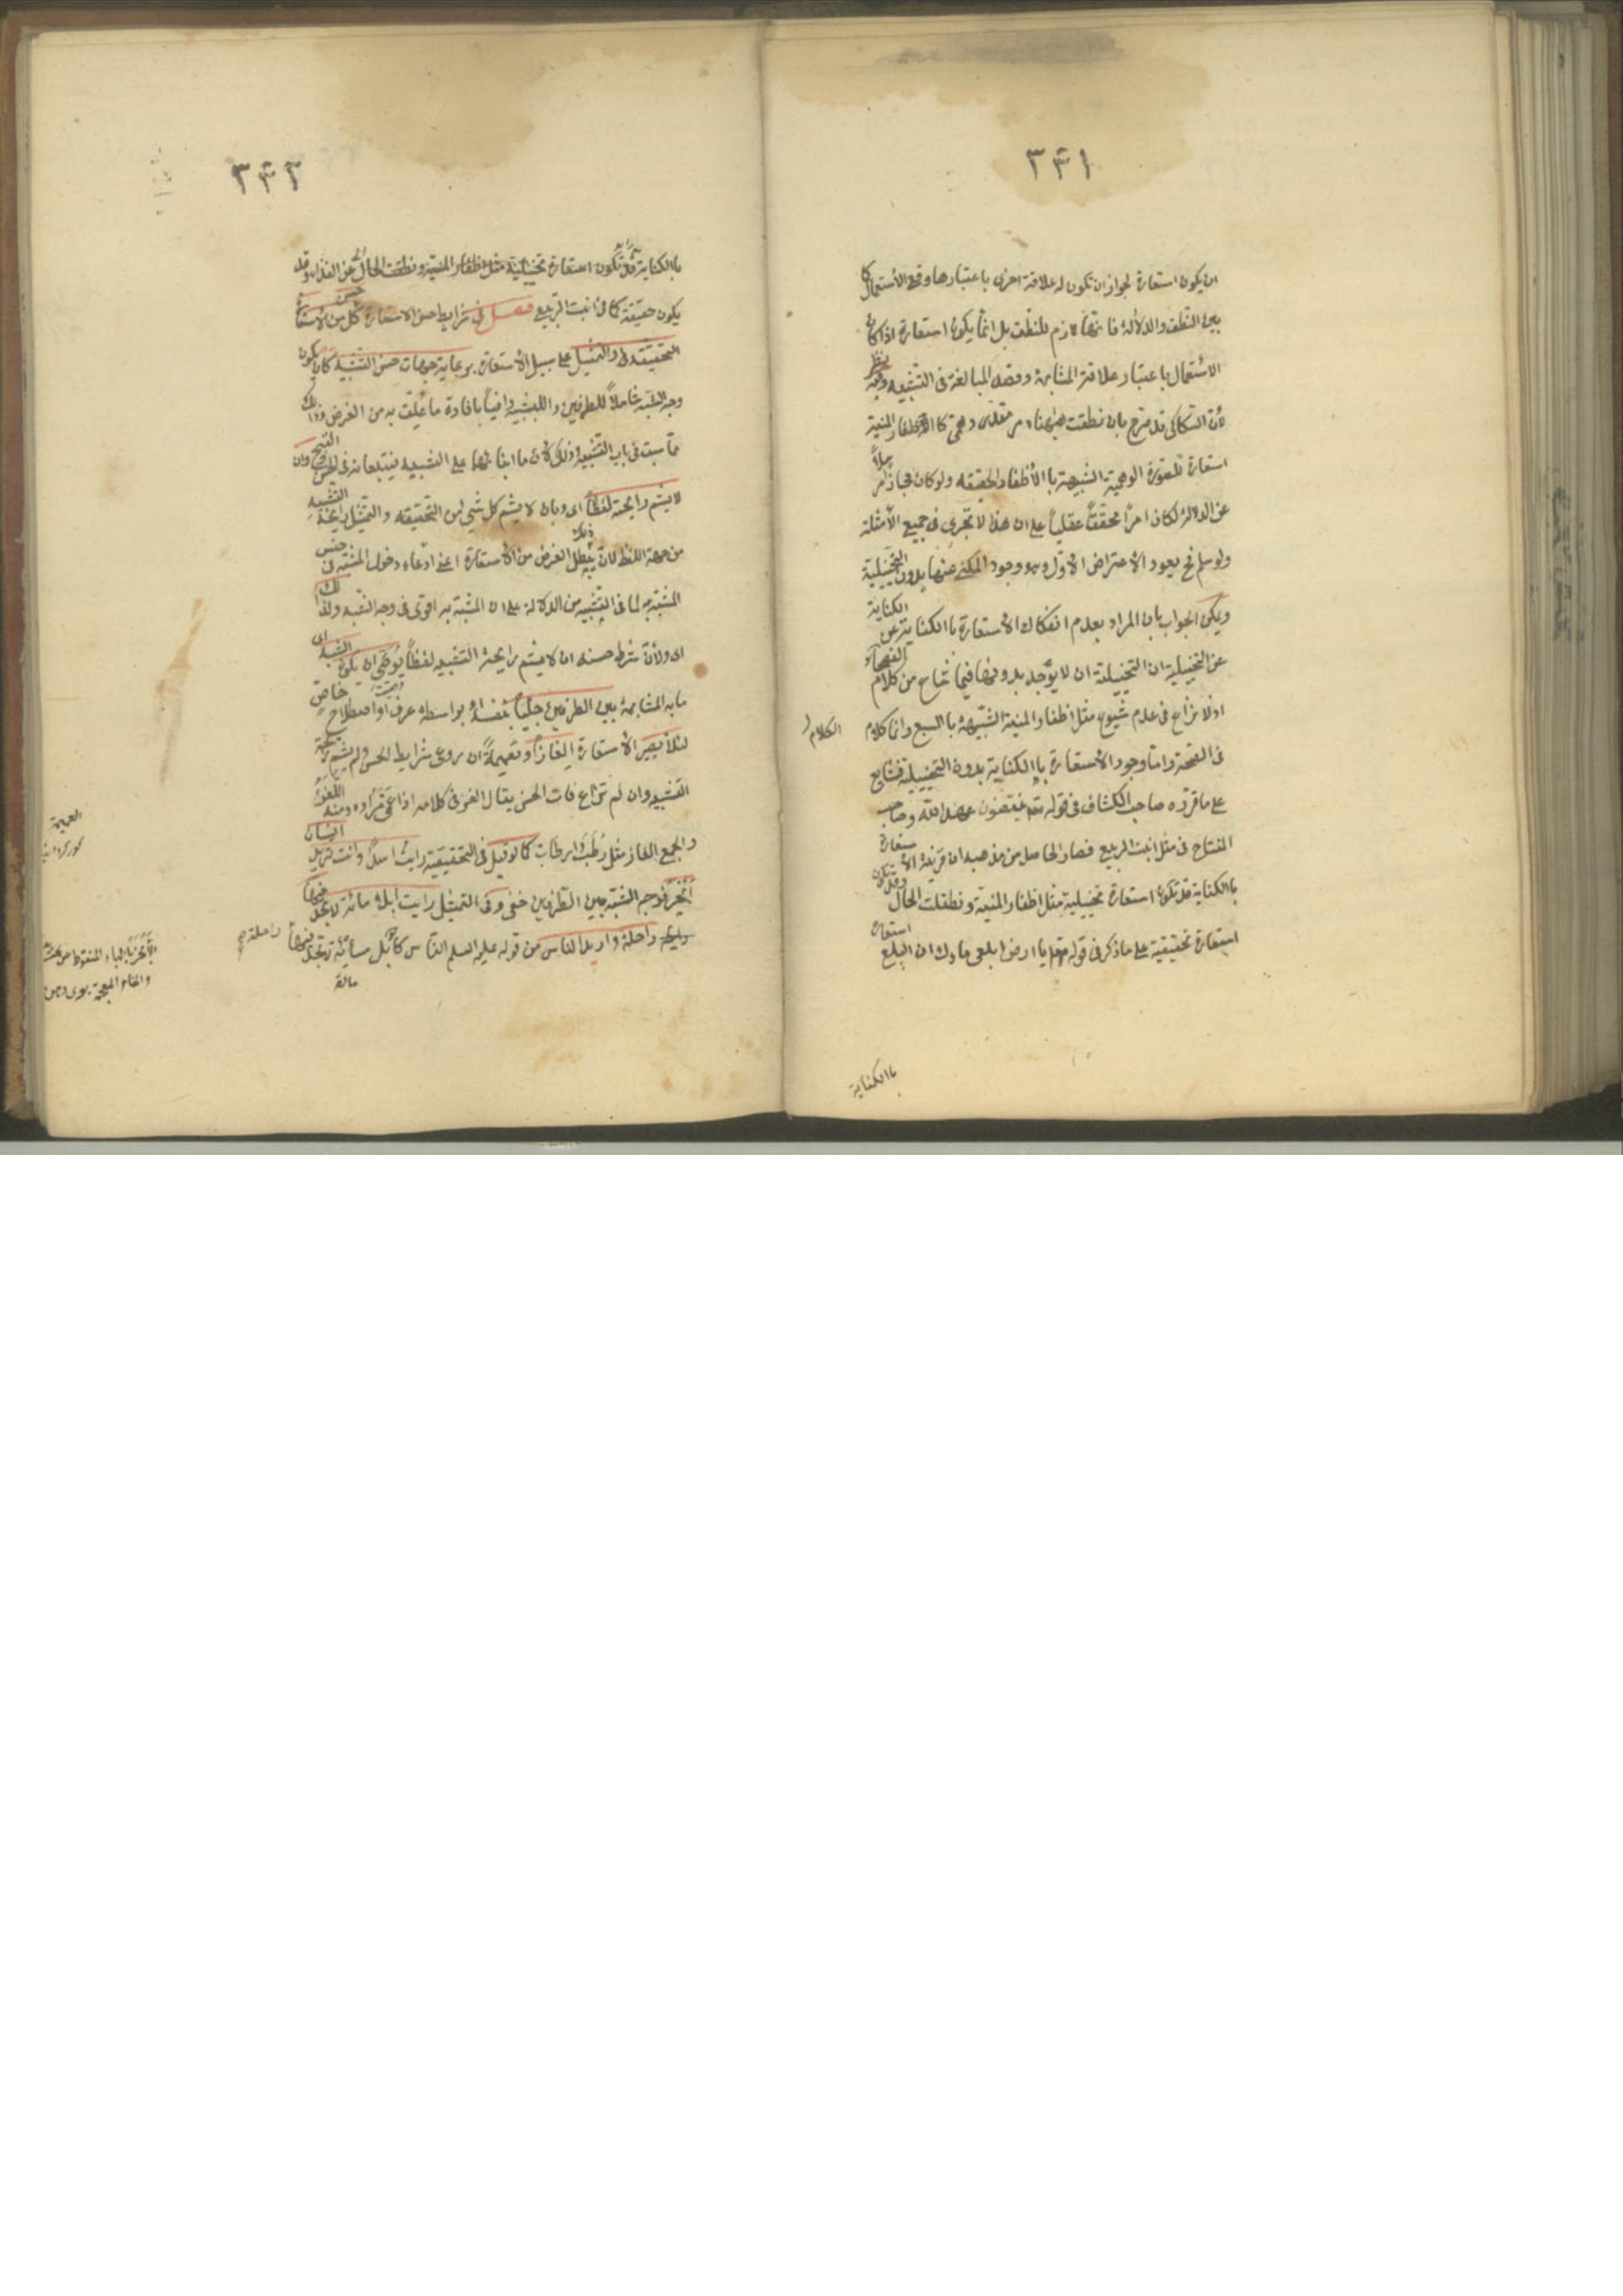 ٣٤١
ان يكون استعارة لجواز ان تكون له علاقة اخرى باعتبارها وقع الأستعمال كما
بين النطق والدلالة فانها لازم للنطق بل انما يكون استعارة اذا كان
الاستعمال باعتبار علاقة المشابهة وقصد المبالغة فى التشبيه وفيه نظر
لأن السكاكى قد صرح بان نطقت ههنا امر مقدر وهمى كا اظفار المنية
استعارة للصورة الوهمية الشبيهة باالأظفار الحقيقه ولو كان مجازا مرسلاً
عن الدلالة لكان امراً محققاً عقلياً على ان هذا لا تجرى فى جميع الأمثلة
ولو سلم فح يعود الاعتراض الاول وهو وجود المكنى عنها بدون التخييلية
ويمكن الجواب بان المراد بعدم انفكاك الأستعارة باالكناية عن الكناية
عن التخييلية ان التخييلية ان لا يوجد بدونها فيما شاع من كلام الفصحاء
اذ لا نزاع فى عدم شيوع مثل اظفار المنية الشبيهة باالسبع وانما كلام
الكلام
فى الصحة واما وجود الاستعارة باالكناية بدون التخييلية فشايع
على ما قرره صاحب الكشاف فى قوله تع ينقضون عهد الله وصاحب
المفتاح فى مثل انبت الربيع فصار الحاصل من مذهبه ان قرينة الاستعارة
باالكناية قد تكون استعارة تخييلية مثل اظفار المنية ونطقت الحال وقد تكون
استعارة تحقيقية على ما ذكر فى قوله تع يا ارض ابلعى ماءك ان البلع استعارة
باالكناية
٣٤٢
باالكناية قد تكون استعارة تخييلية مثل اظفار المنية ونطقت الحال عن الغذاء وقد
يكون حقيقة كما فى انبت الربيع فصل فى شرايط حسن الاستعارة حسن كل من الاستعارة
التحقيقه والتمثيل على سبيل الأستعارة برعاية جهات حسن التشبيه كان يكون
وجه الشبه شاملاً للطرفين والتشبيه وافياً بافادة ما علق به من الغرض وذلك
مما سبق فى باب التشبيه وذلك لان مبناهما على التشبيه فيتبعانه فى الحسن والقبح وان
لا يشم رايحته لفظاً اى وبان لا يشم كل شىء من التحقيقه والتمثيل رايحة التشبيه
من جهة اللفظ لان ذلك يبطل الغرض من الأستعارة اعنى ادعاء دخول المشبه فى جنس
المشبه به لما فى التشبيه من الدلالة على ان المشبه به اقوى فى وجه الشبه ولذلك
اى ولأن شرط حسنه ان لا يشم رايحة التشبيه لفظاً يوصى ان يكون الشبه اى
ما به المشابهة بين الطرفين جلياً بنفسه او بواسطة عرف او اصطلاح خاص
لئلا يصير الأستعارة الغازاً وتعميةً ان روعى شرايط الحسن ولم يشم رايحة
التشبيه وان لم تراع فات الحسن يقال الغز فى كلامه اذا عمى مراده ومنه اللغز
والجمع الغاز مثل رطب وارطاب كما لو قيل فى التحقيقية رايت اسداً وانت تريد انسان
ابخر فوجه الشبه بين الطرفين خفى وفى التمثيل رايت ابلا مائة لا تجد فيها
راحلة واريد الناس من قوله عليه السلم الناس كابل مائة لا تجد فيها راحلة صح
مائة
العمية
الأبخر باالباء المنقوط من تحت
والخاء المعجمة